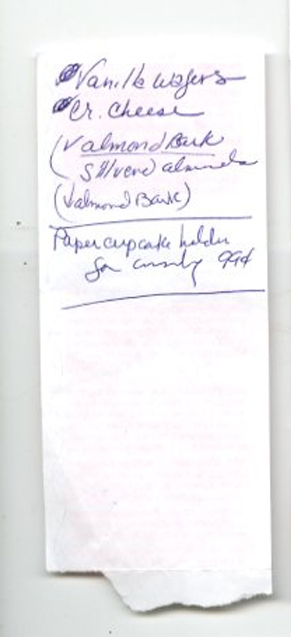 Vanilla wafers
Cr. cheese
(V almond Bark
Slivered almonds
(1 almond Bark)
Paper cupcake holder
for candy 99¢